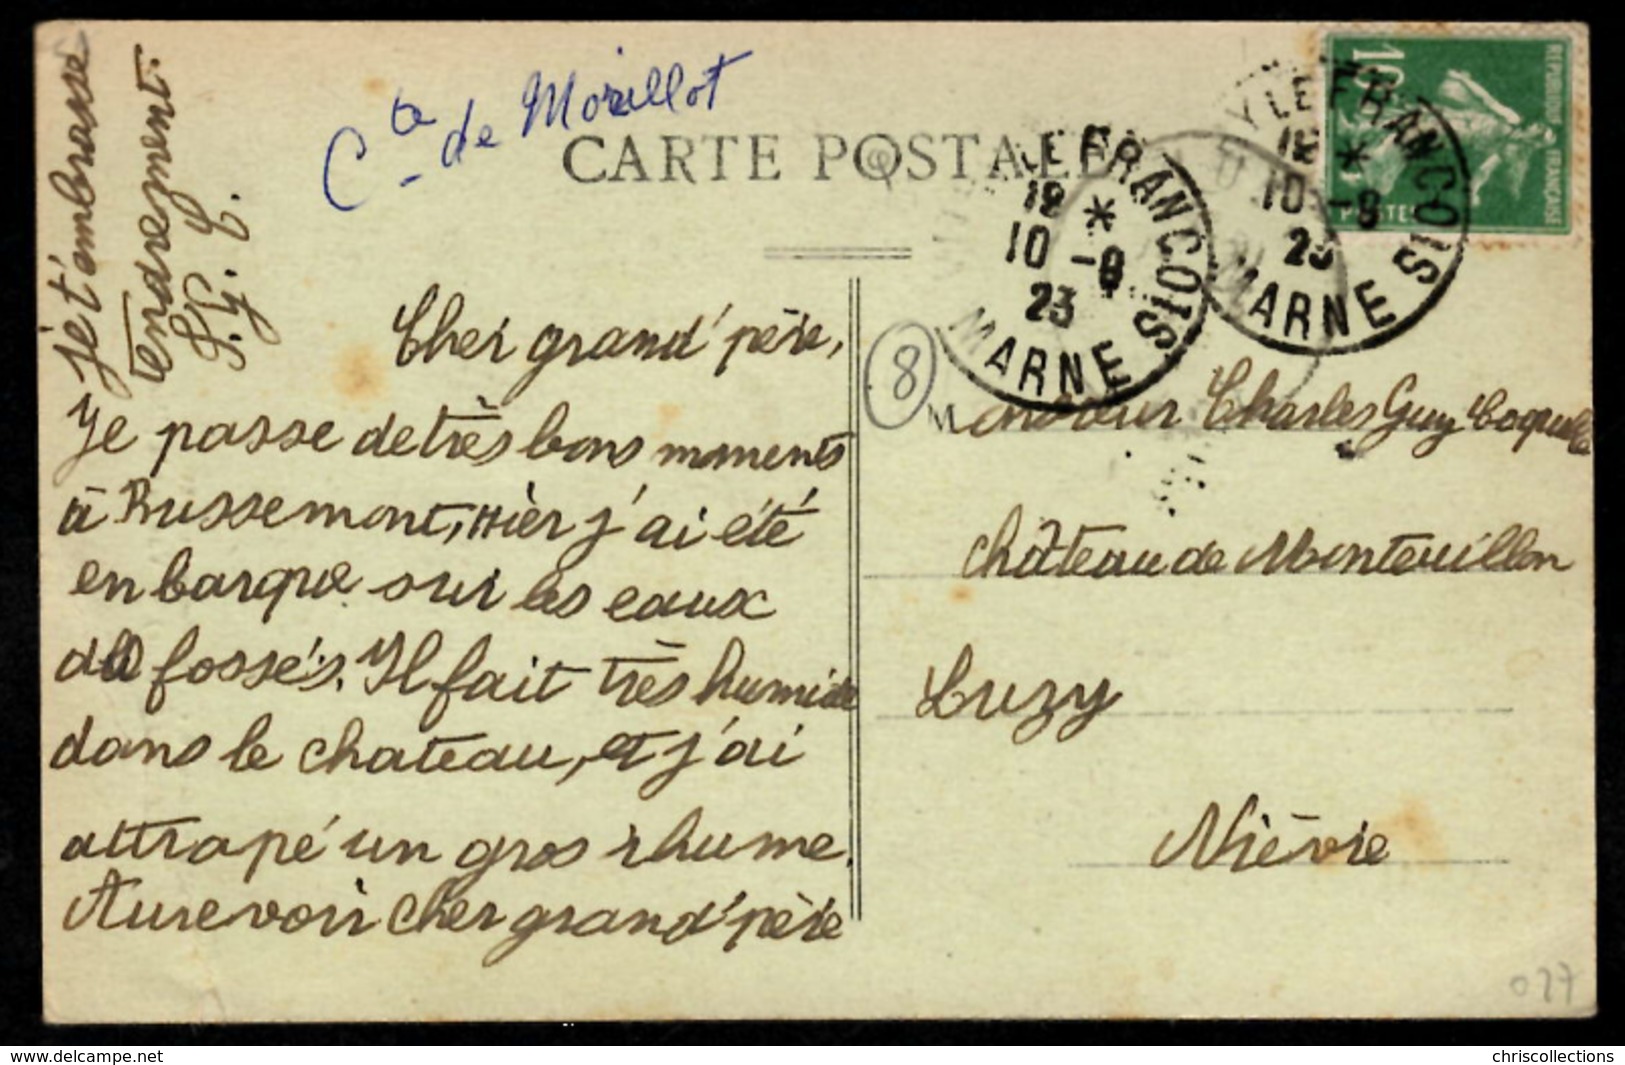 Cte de Morillot
CARTE POSTALE
Cher grand'père,
Je passe de très bons moments
à Russemont, Hier j'ai été
en barque sur les eaux
fossés. Il fait très humide
dans le chateau, et j'ai
attrapé un gros rhume.
Au revoir cher grand'père
je t'embrasse
tendrement.
8
Monsieur Charles Guy Coquille
château de Montevillon
Luzy
Nièvre
10
REPUBLIQUE FRANÇAISE
POSTES
LE FRANCOIS
18 *
10 -9
23
MARNE
Y LE FRANCOIS
18 *
10 -9
23
MARNE
077
www.delcampe.net
chriscollections